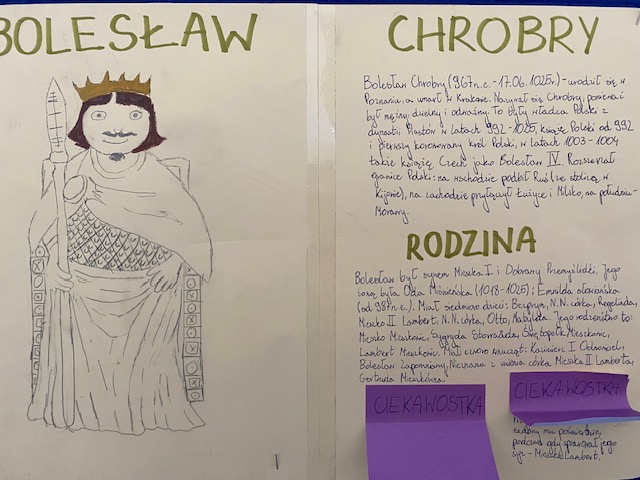 BOLESŁAW CHROBRY
Bolesław Chrobry (967r.n.e.-17.06.1025r.) - urodził się w
Poznaniu, a umarł w Krakowie. Nazywał się Chrobry, ponieważ
był mężny, dzielny i odważny. To były władca Polski z
dynastii Piastów w latach 992-1025, książę Polski od 992
i pierwszy koronowany król Polski, w latach 1003-1004
także książę Czech jako Bolesław IV. Rozszerzał
granice Polski: na wschodzie podbił Ruś (ze stolicą w
Kijowie), na zachodzie przyłączył Łużyce i Milsko, na południu-
Morawy.
RODZINA
Bolesław był synem Mieszka I i Dobrawy Przemyślidki. Jego
żoną była Oda Miśnieńska (1018-1025); Emnilda słowiańska
(od 987r.n.e.). Miał siedmioro dzieci: Bezprym, N.N. córka, Regelinda,
Mieszko II Lambert, N.N. córka, Otto, Matylda. Jego rodzeństwo to:
Mieszko Mieszkowic, Sygryda Storrada, Świętopełk Mieszkowic,
Lambert Mieszkowic. Miał czworo wnucząt: Kazimierz I Odnowiciel,
Bolesław Zapomniany, Nieznana z imienia córka Mieszka II Lamberta,
Gertruda Mieszkówna.
CIEKAWOSTKA
CIEKAWOSTKA
nadany mu pośmiertnie
podczas gdy sprawował jego
syn - Mieszko Lambert.